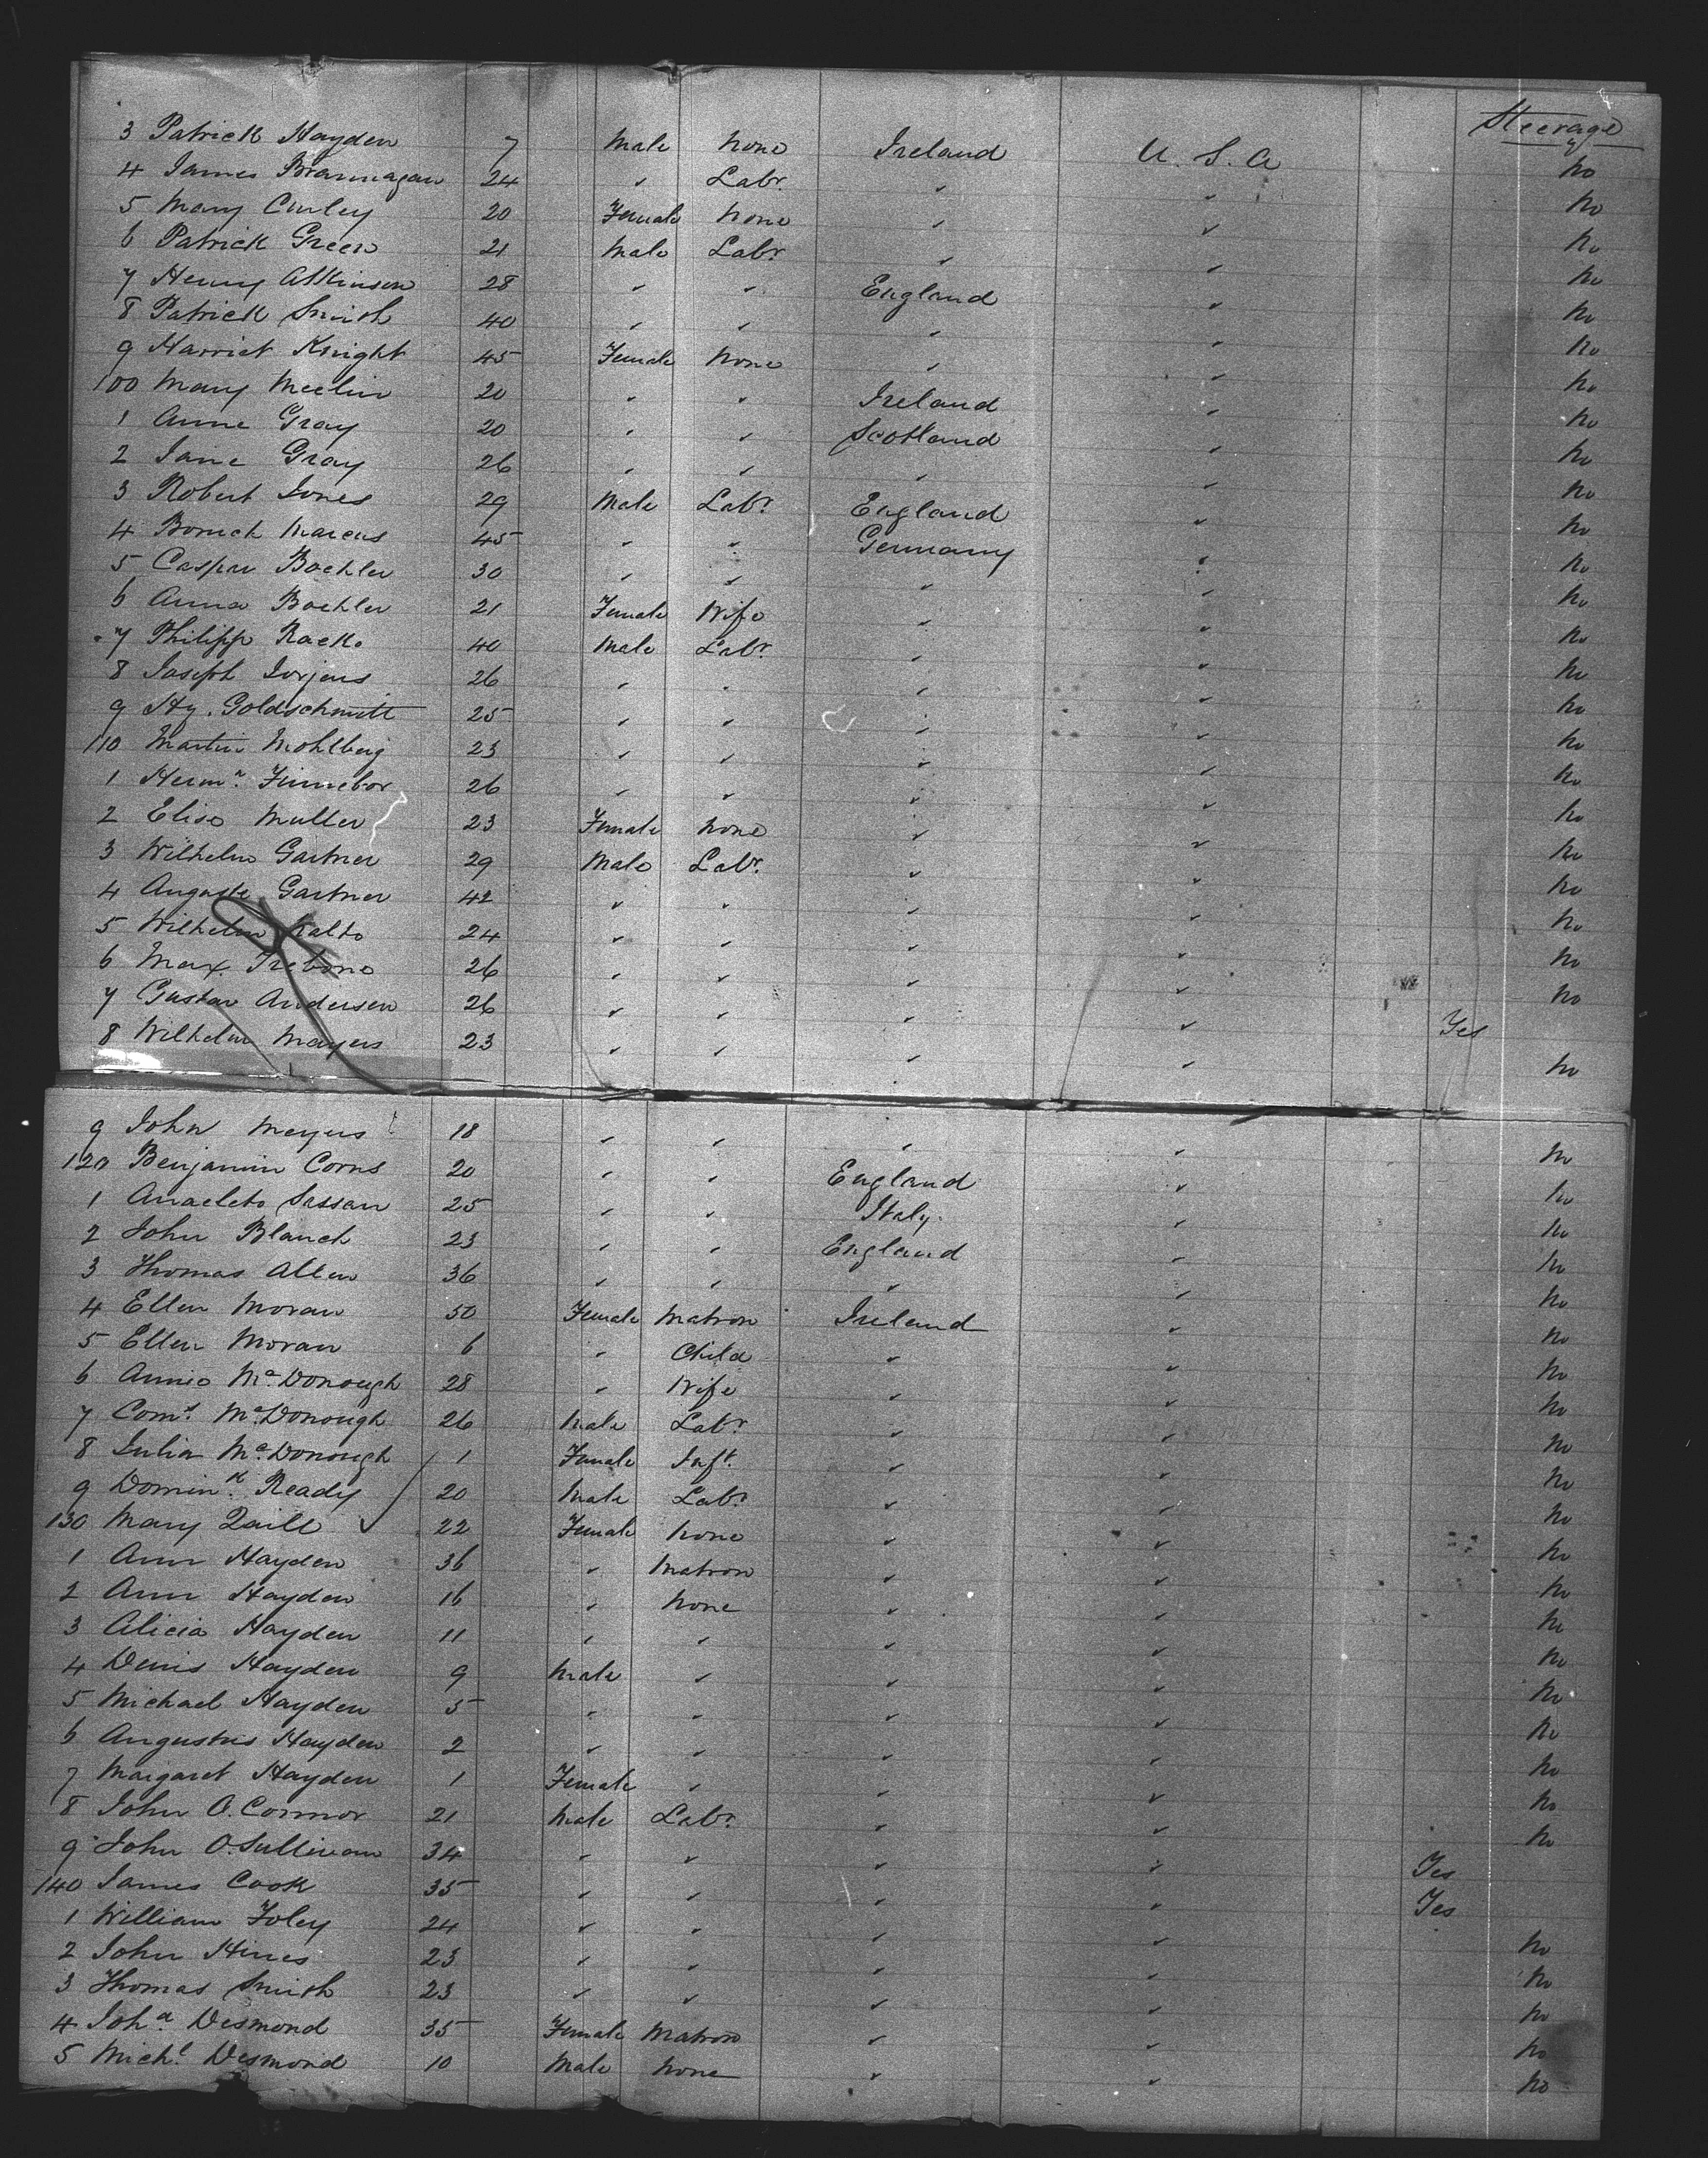 Steerage
3 Patrick Hayden 7 Male None Ireland U. S. A No
4 James Brannagan 24 " Labr. " " No
5 Mary Curley 20 Female None " " No
6 Patrick Green 21 Male Labr " " No
7 Henry Atkinson 28 " " England " No
8 Patrick Smith 40 " " " " No
9 Harriet Knight 45 Female None " " No
100 Mary Meelin 20 " " Ireland " No
1 Anne Gray 20 " " Scotland " No
2 Jane Gray 26 " " " " No
3 Robert Jones 29 Male Labr. England " No
4 Boruch Marcus 45 " " Germany " No
5 Caspar Boehler 30 " " " " No
6 Anna Boehler 21 Female Wife " " No
7 Philipp Racko 40 Male Labr. " " No
8 Joseph Jorjens 26 " " " " No
9 Hy. Goldschmitt 25 " " " " No
110 Martin Mohlberg 23 " " " " No
1 Hermn. Finnebor 26 " " " " No
2 Elise Muller 23 Female None " " No
3 Wilhelm Gartner 29 Male Labr. " " No
4 Auguste Gartner 42 " " " " No
5 Wilhelm Kalto 24 " " " " No
6 Max Trebone 26 " " " " No
7 Gustav Andersen 26 " " " " Yes
8 Wilhelm Mayers 23 " " " " No
9 John Meyers 18 " " " " No
120 Benjamin Corns 20 " " England " No
1 Anacleto Sassan 25 " " Italy. " No
2 John Blanch 23 " " England " No
3 Thomas Allen 36 " " " " No
4 Ellen Moran 50 Female Matron Ireland " No
5 Ellen Moran 6 " Child " " No
6 Annie McDonough 28 " Wife " " No
7 Coms. McDonough 26 Male Labr " " No
8 Julia McDonough 1 Female Inft. " " No
9 Domink. Ready 20 Male Labr. " " No
130 Mary Quill 22 Female None " " No
1 Ann Hayden 36 " Matron " " No
2 Ann Hayden 16 " None " " No
3 Alicia Hayden 11 " " " " No
4 Denis Hayden 9 Male " " " No
5 Michael Hayden 5 " " " " No
6 Augustus Hayden 2 " " " " No
7 Margaret Hayden 1 Female " " " No
8 John O.Connor 21 Male Labr. " " No
9 John O.Sullivan 34 " " " " Yes
140 James Cook 35 " " " " Yes
1 William Foley 24 " " " " No
2 John Hines 23 " " " " No
3 Thomas Smith 23 " " " " No
4 Joha Desmond 35 Female Matron " " No
5 Michl. Desmond 10 Male None " " No